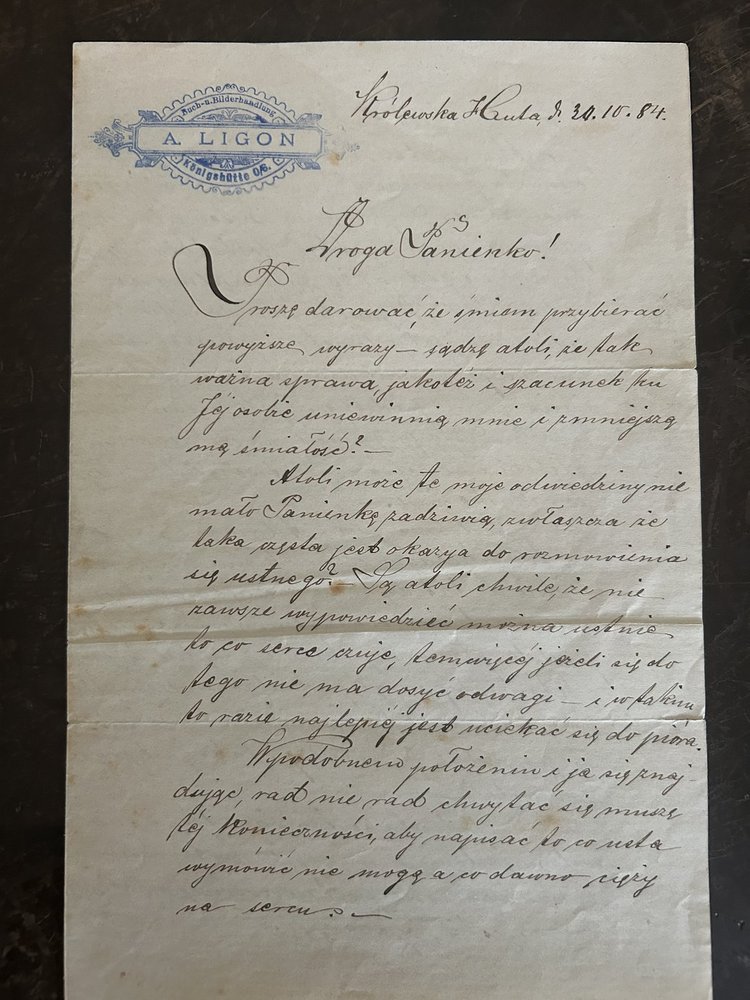 Buch- u. Bilderhandlung
A. LIGON
Königshütte O/S.
Królewska Huta, d. 30.10.84.
Droga Panienko!
Proszę darować, że śmiem przybierać
powyższe wyrazy — sądzę atoli, że tak
ważna sprawa, jakotéż i szacunek ku
Jéj osobie uniewinnią mnie i zmniejszą
mą śmiałość? —
Atoli może te moje odwiedziny nie
mało Panienkę zadziwią, zwłaszcza że
taka częsta jest okazya do rozmowienia
się ustnego? — Są atoli chwile, że nie
zawsze wypowiedzieć można ustnie
to co serce czuje, temwięcéj jeżeli się do
tego nie ma dosyć odwagi — i w takim
to razie najlepiéj jest uciekać się do pióra.
W podobnem położeniu i ja się znaj-
dując, rad nie rad chwytać się muszę
téj konieczności, aby napisać to co usta
wymówić nie mogą a co dawno cięży
na sercu. —